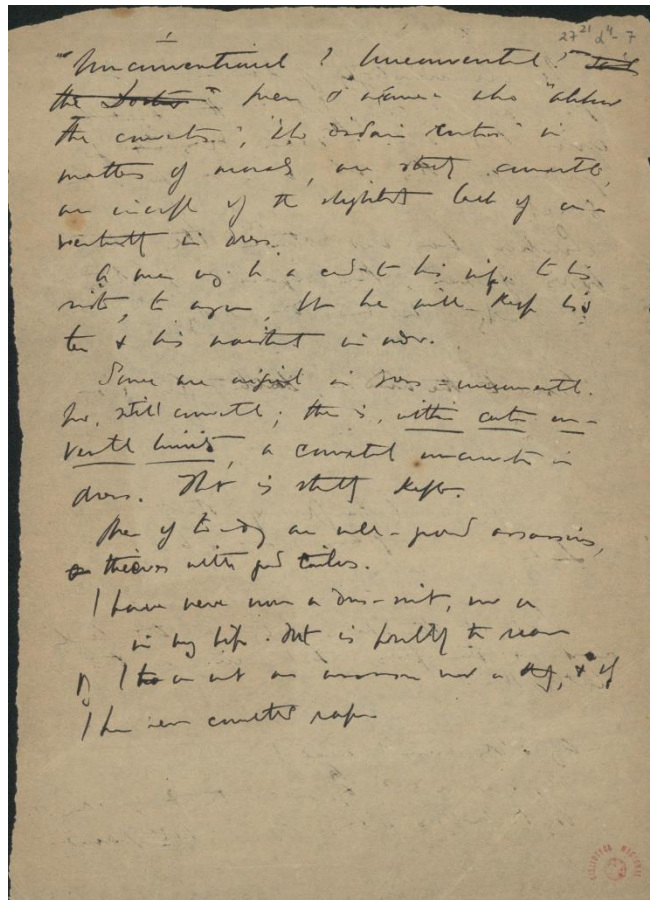 27 21 d4-7
"Unconventional? Unconventional?" said
the Doctor" Men & women who "abhor
the conventions", who disdain convention in
matters of morals, are strictly conventional,
are incap of the slightest lack of con-
ventionality in dress.
A man may be a cad to his wife, to his
sister, to anyone, but he will keep his
tie & his waistcoat in order.
Some are original in dress - unconventional.
But, still conventional; there is, within certain con-
ventional limits, a conventional unconvention in
dress. That is strictly kept.
Men of to-day are well-groomed assassins,
thieves with good tailors.
I have never worn a dress-suit, never
in my life. That is possibly the reason
why I am not an assassin nor a thief, & why
I have never committed rape.
BIBLIOTECA NACIONAL